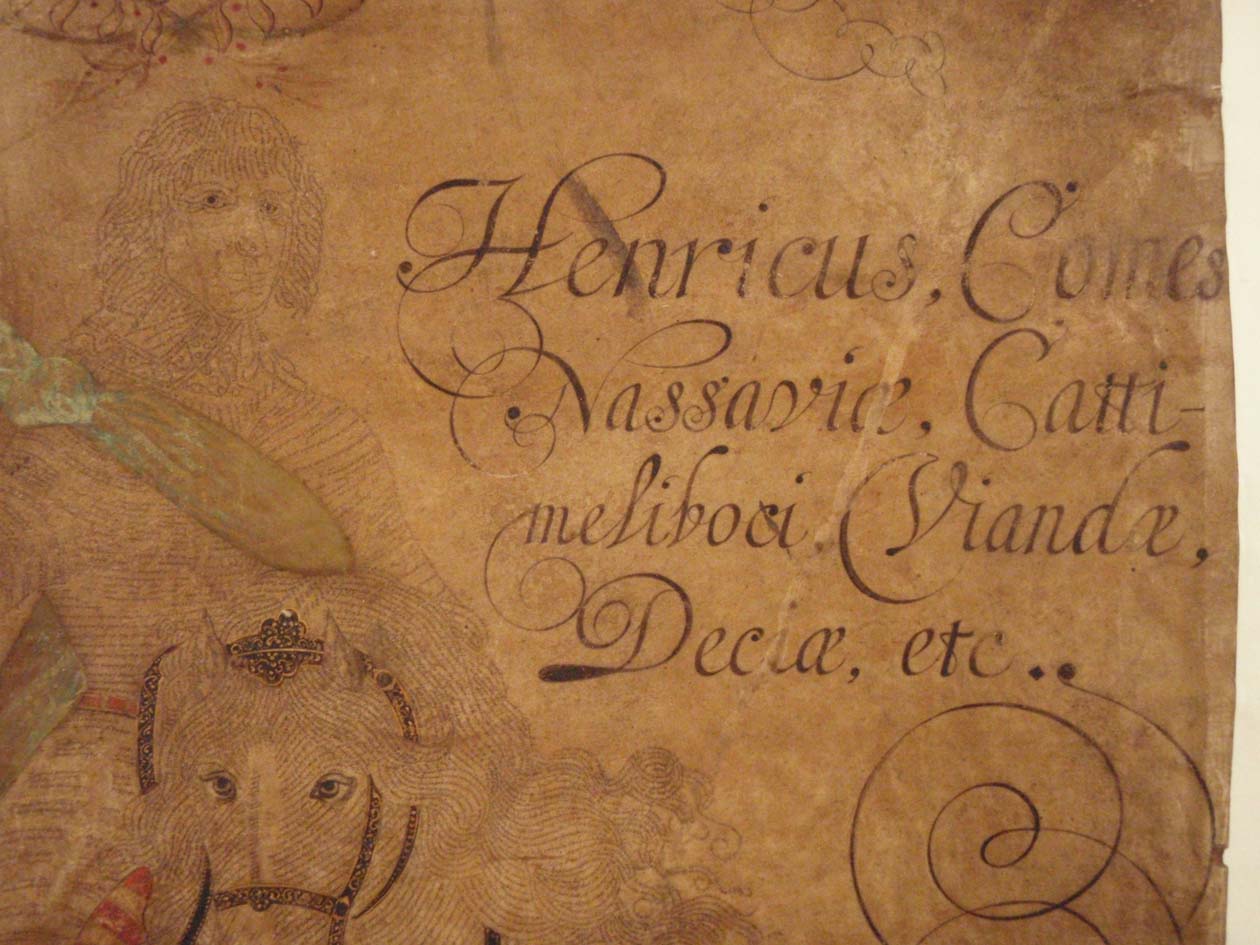 Henricus, Comes
Nassaviæ, Catti-
meliboci, Viandæ,
Deciæ, etc..